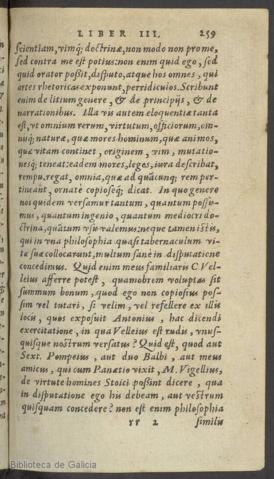 LIBER III. 259
scientiam, vimq́; doctrinæ, non modo non pro me,
sed contra me est potius: non enim quid ego, sed
quid orator possit, disputo, atque hos omnes, qui
artes rhetoricas exponunt, perridiculos. Scribunt
enim de litium genere, & de principijs, & de
narrationibus. Illa vis autem eloquentiæ tanta
est, vt omnium rerum, virtutum, officiorum, om-
niuq́; naturæ, quæ mores hominum, quæ animos,
quæ vitam continet, originem, vim, mutatio-
nesq́; teneat: eadem mores, leges, iura describat,
rempu. regat, omnia, quæ ad quācunq; rem per-
tineant, ornatè copioseq́; dicat. In quo genere
nos quidem versamur tantum, quantum possu-
mus, quantum ingenio, quantum mediocri do-
ctrina, quātum vsu valemus: neque tamen istis,
qui in vna philosophia quasi tabernaculum vi-
tæ suæ collocarunt, multum sanè in disputatione
concedimus. Quid enim meus familiaris C Vel-
leius afferre potest, quamobrem voluptas sit
summum bonum, quod ego non copiosius pos-
sim vel tutari, si velim, vel refellere ex illis
locis, quos exposuit Antonius, hac dicendi
exercitatione, in qua Velleius est rudis, vnus-
quisque nostrum versatus? Quid est, quod aut
Sext. Pompeius, aut duo Balbi, aut meus
amicus, qui cum Panætio vixit, M. Vigellius,
de virtute homines Stoici possint dicere, qua
in disputatione ego his debeam, aut vestrûm
quisquam concedere? non est enim philosophia
rr 2 similis
Biblioteca de Galicia